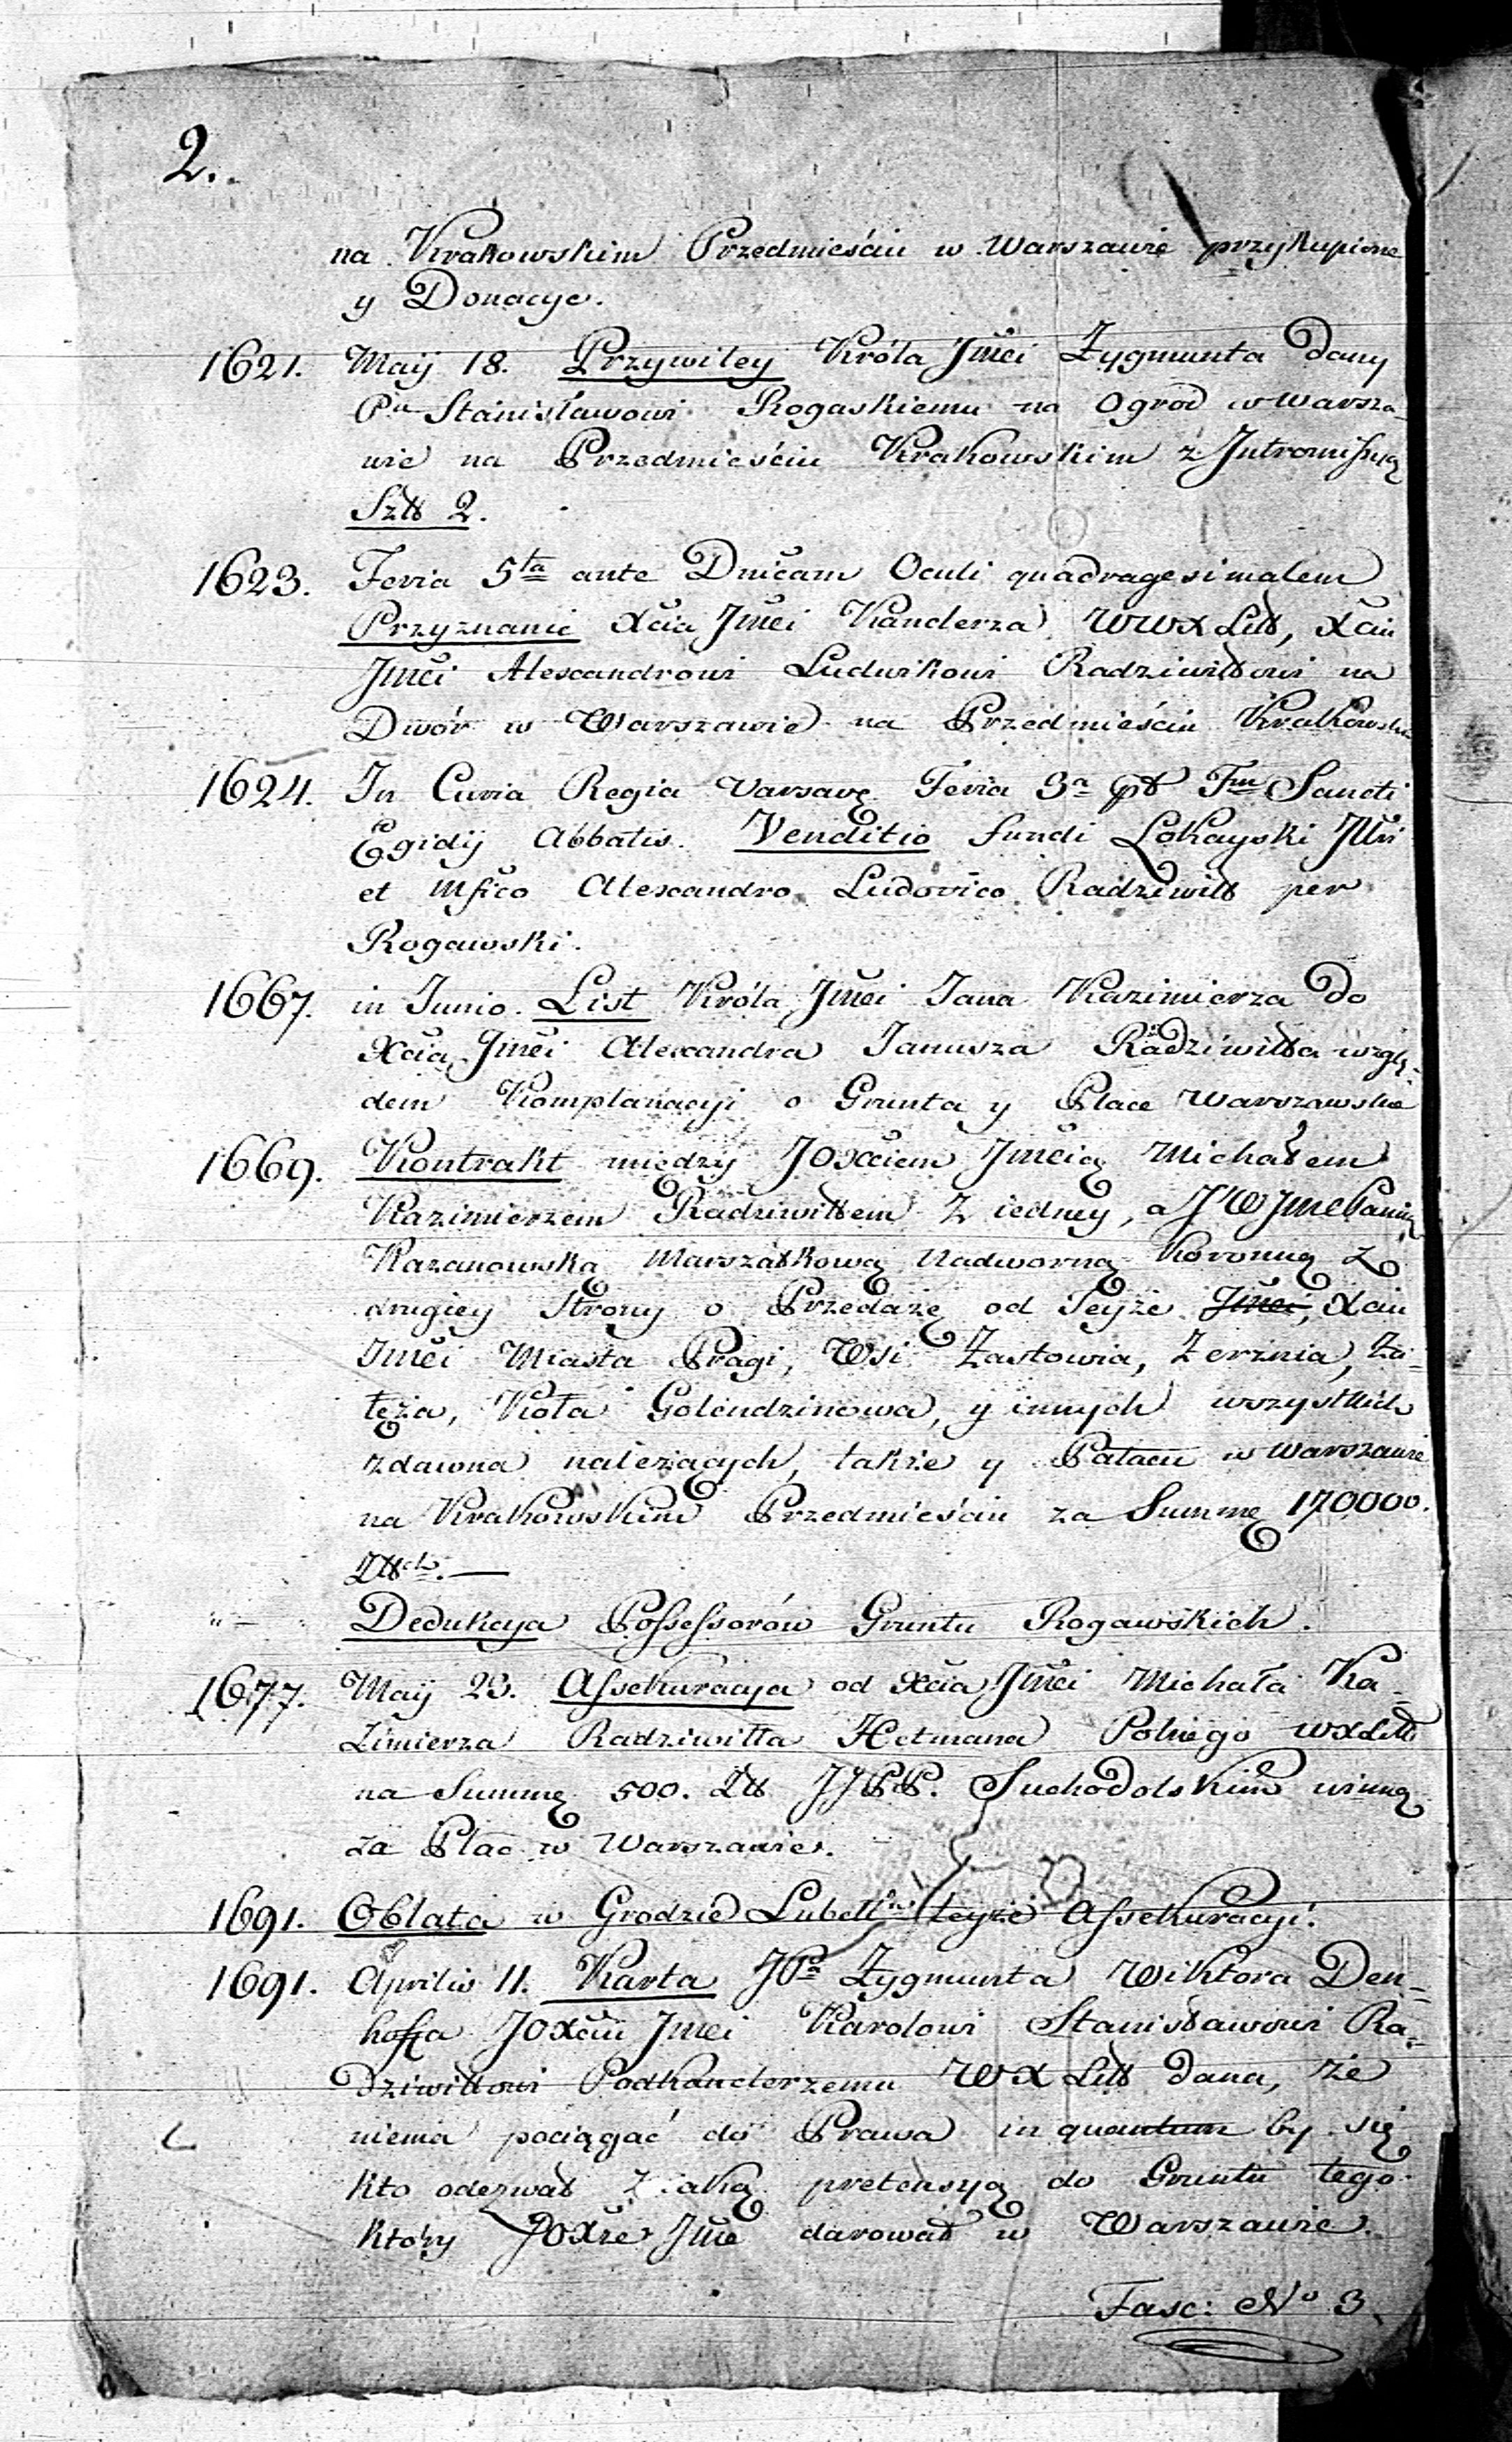 2.
na Krakowskim Przedmieściu w Warszawie przykupione
y Donacye.
1621. Maij 18. Przywiley Króla Jmci Zygmunta dany
Pu Stanisławowi Rogaskiemu na Ogrod w Warsza-
wie na Przedmieściu Krakowskim z Intromissyą
Sztt 2.
1623. Feria 5ta ante Dnicam Oculi quadragesimalem
Przyznanie Xcia Jmci Kanclerza WWX Litt, Xciu
Jmci Alexandrowi Ludwikowi Radziwiłłowi na
Dwór w Warszawie na Przedmieściu Krakowskm
1624. In Curia Regia Varsavę Feria 3a pt Fm Sancti
Egidij Abbatis. Venditio fundi Lokayski Illri
et Mfico Alexandro Ludovico Radziwiłł per
Rogawski.
1667. in Junio. List Króla Jmci Jana Kazimierza do
Xcia Jmci Alexandra Janusza Radziwiłła wzglę-
dem Komplanacyi o Grunta y Place Warszawskie
1669. Kontrakt między JOXciem Jmcią Michałem
Kazimierzem Radziwiłłem Z iedney, a JW Jmc Panią
Kazanowską Marszałkową Nadworną Koronną Z
drugiey Strony o Przedażę od Teyże Jmci, Xciu
Jmci Miasta Pragi, Wsi Zastowia, Zerznia, Za-
łęża, Koła Golendzinowa, y innych wszystkich
zdawna należących, także y Pałacu w Warszawie
na Krakowskim Przedmieściu za Summę 170000.
Złłch. —
" — " Dedukcya Possessorów Gruntu Rogawskich.
1677. Maij 23. Assekuracya od Xcia Jmci Michała Ka-
zimierza Radziwiłła Hetmana Polnego WXLitt
na Summę 500. Złł JJPP. Suchodolskim winną
za Plac w Warszawie.
1691. Oblata w Grodzie Lubell teyże Assekuracyi.
1691. Aprilis 11. Karta JPa Zygmunta Wiktora Den-
hoffa JOXciu Jmci Karolowi Stanisławowi Ra-
dziwiłłowi Podkanclerzemu WX Litt dana, że
niema pociągać do Prawa in quantum by się
kto odezwał Z iaką pretensyą do Gruntu tego
który JOXże Jmc darował w Warszawie.
Fasc: No 3.